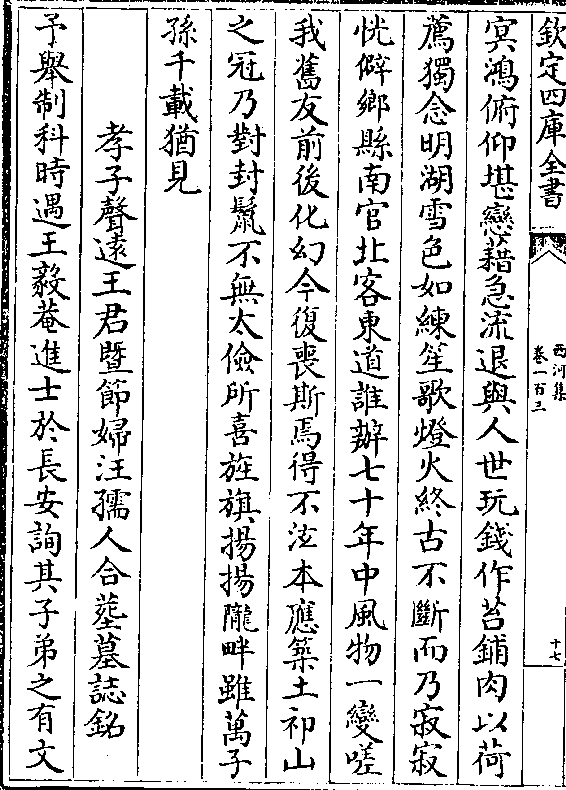 欽定四庫全書
西河集
卷一百三
十七
㝠鴻俯仰堪戀藉急流退與人世玩錢作苔鋪肉以荷
薦獨念明湖雪色如練笙歌燈火終古不斷而乃寂寂
恍僻鄉縣南官北客東道誰辦七十年中風物一變嗟
我舊友前後化幻今復喪斯焉得不泫本應築土祁山
之冠乃對封鬛不無太儉所喜旌旗揚揚隴畔雖萬子
孫千載猶見
孝子聲遠王君暨節婦汪孺人合塟墓誌銘
予舉制科時遇王毅菴進士於長安詢其子弟之有文